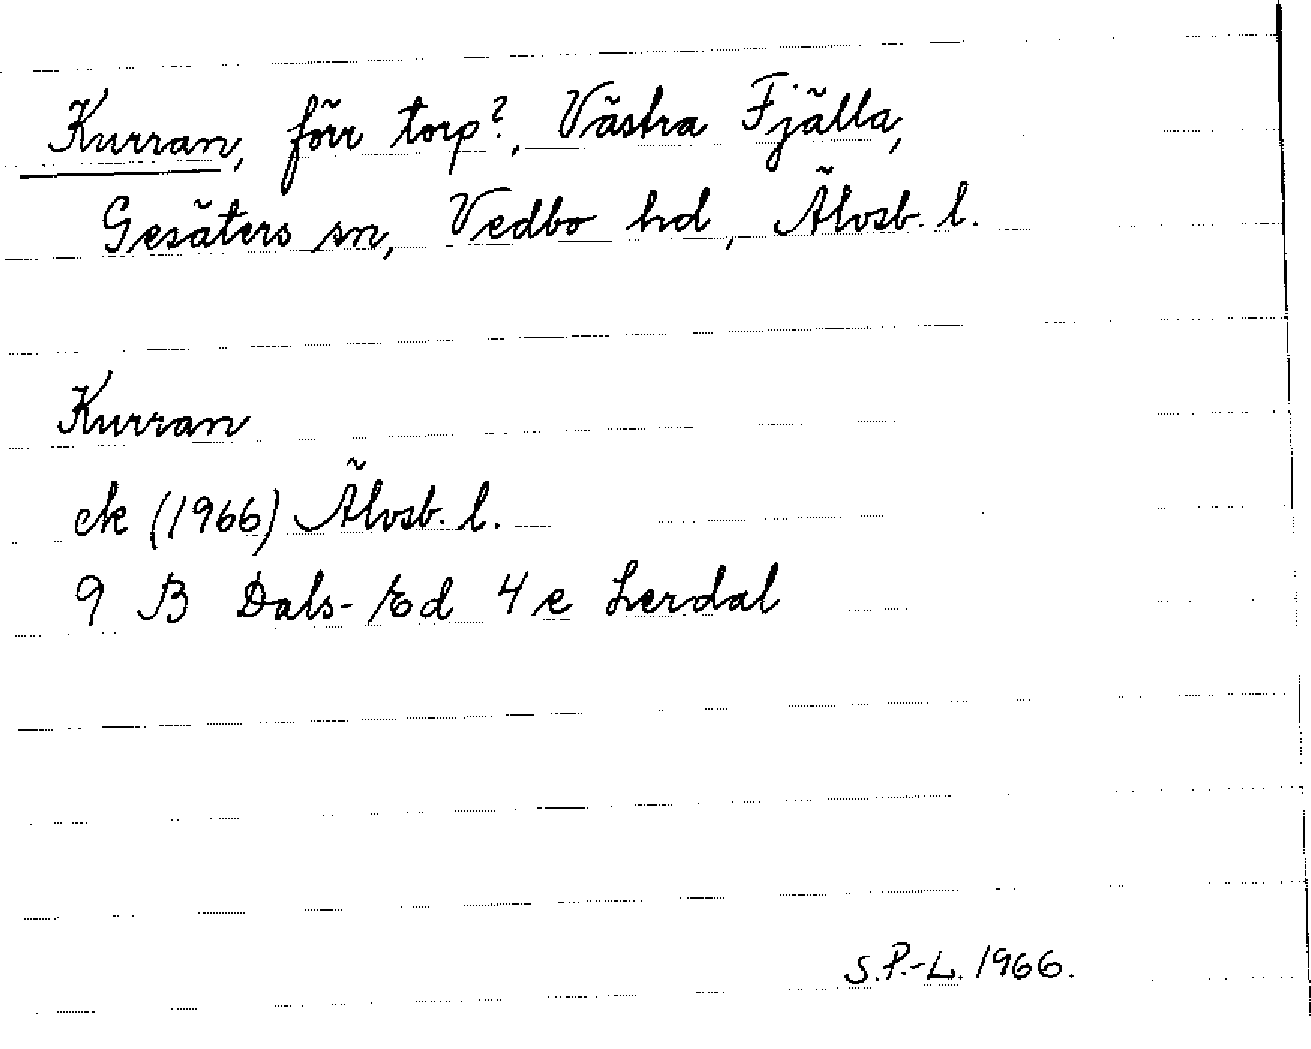 Kurran, förr torp?, Västra Fjälla,
Gesäters sn, Vedbo hd, Älvsb. l.
Kurran
ek (1966) Älvsb. l.
9 B Dals-Ed 4 e Lerdal
S.P.-L. 1966.